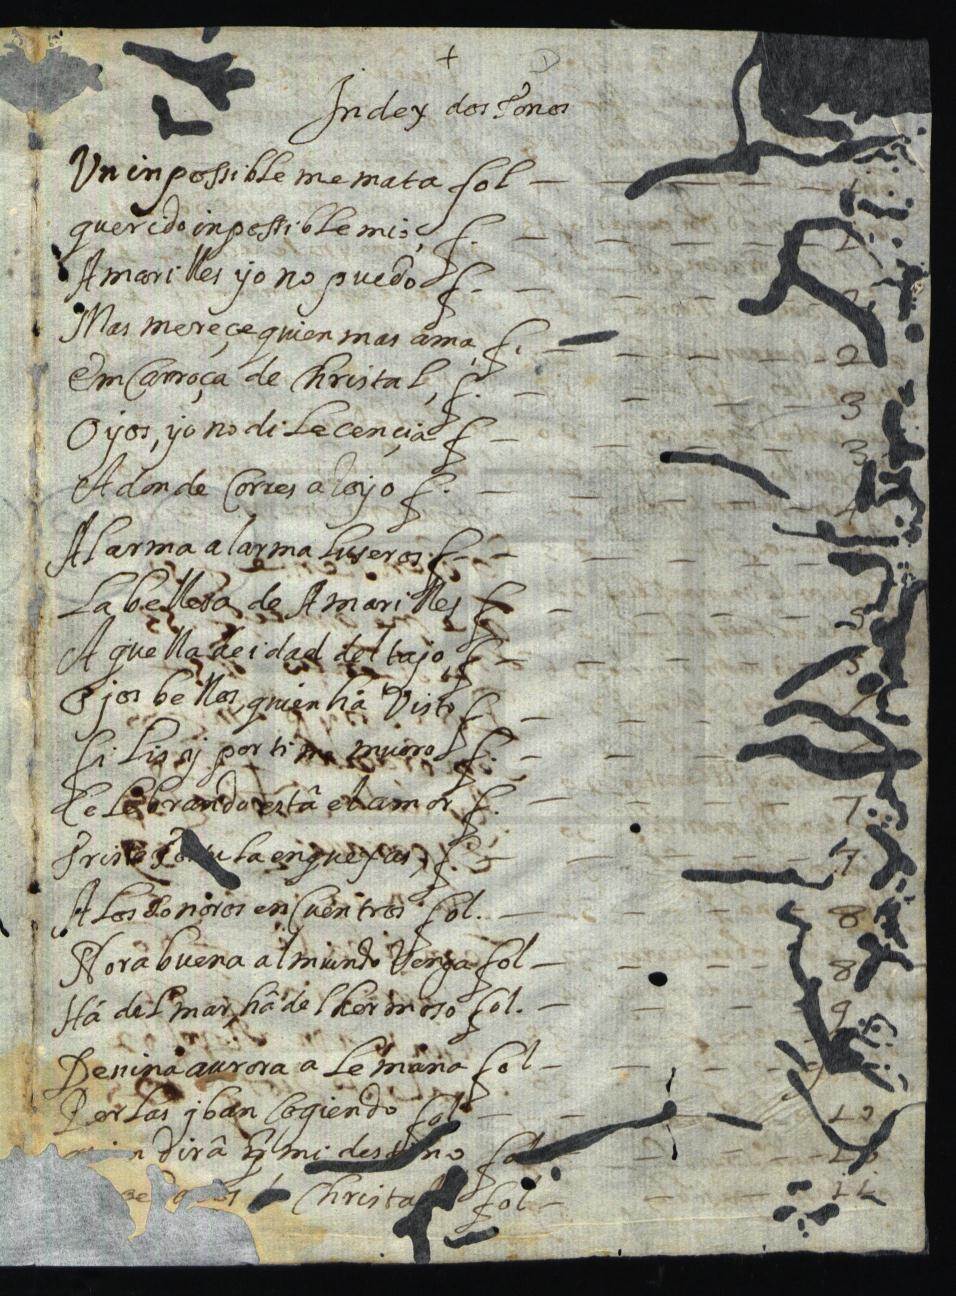 Index dos Tonos
Un inpossible me mata fol
querido inpossible mio, f. 1
Amarilles yo no puedo f. 2
Mas mereçe quien mas ama, f. 2
Em Carroça de Christal, f. 3
Ojos, yo no di Lecençia f 3
Adonde Corres aloyo f. 4
Al arma al arma Luseros f
La belleza de Amarilles f 5
Aquella deidad del tajo f 5
Ojos bellos, quien há Visto f
filis yo por ti me muero f.
Celebrando está el amor f. 7
Triste en quexas, f. 7
A Los Sonoros enCuentros fol. 8
Norabuena al mundo Venga fol 8
Há del mar, há del hermoso fol. 9
De nina aurora a Lemana fol 9
Perlas yban Cogiendo fol 10
dirâ q̃ mi fol 10
Christal fol 11